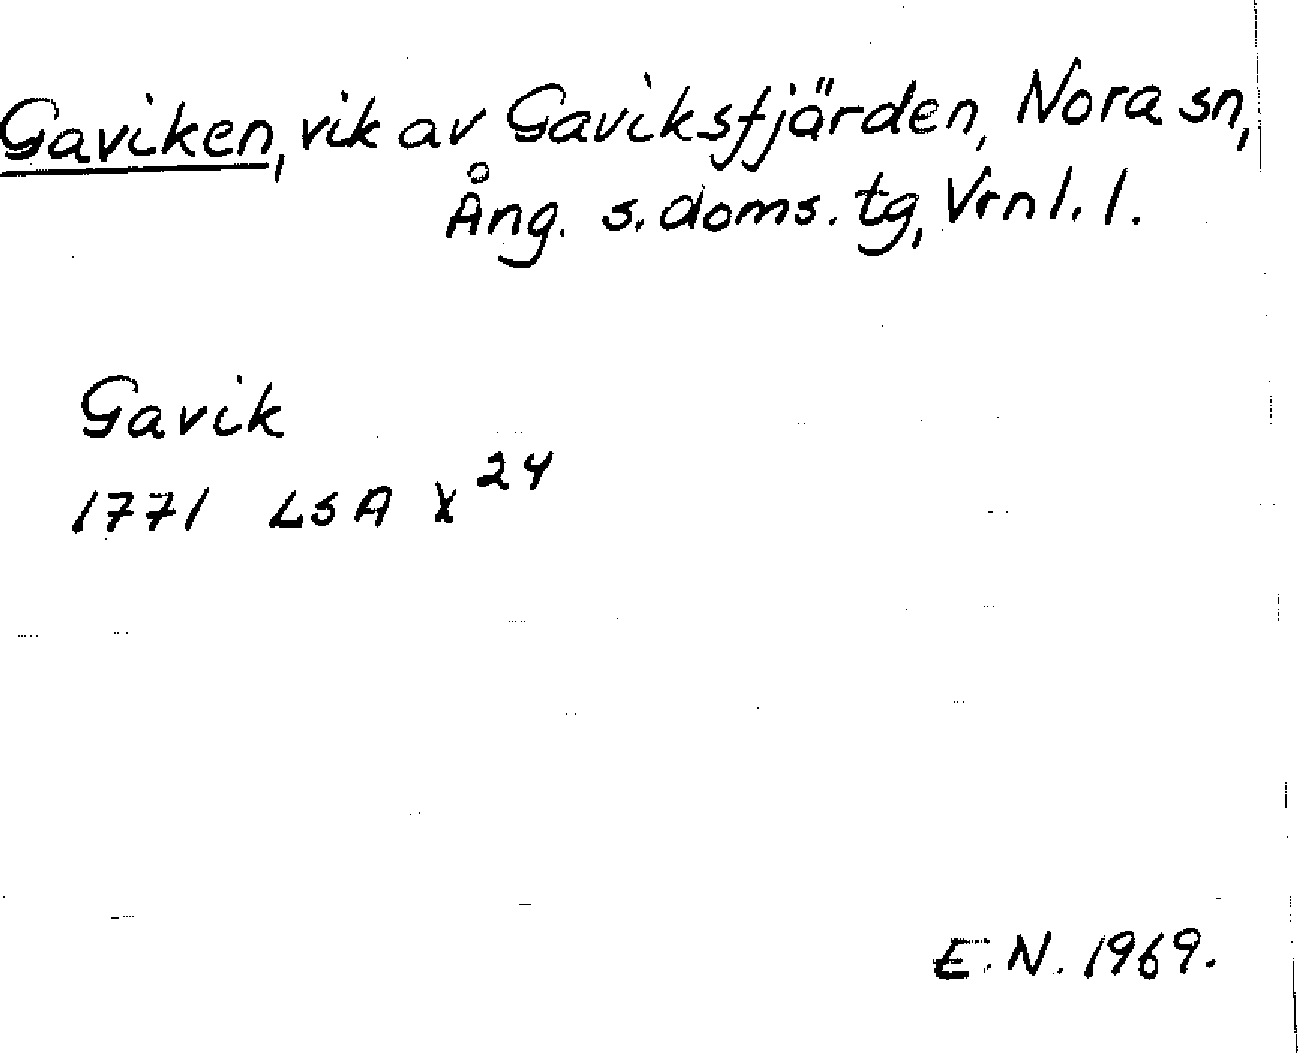 Gaviken, vik av Gaviksfjärden, Nora sn,
Ång. s. doms. tg, Vrnl. l.
Gavik
1771 LSA X 24
E. N. 1969.